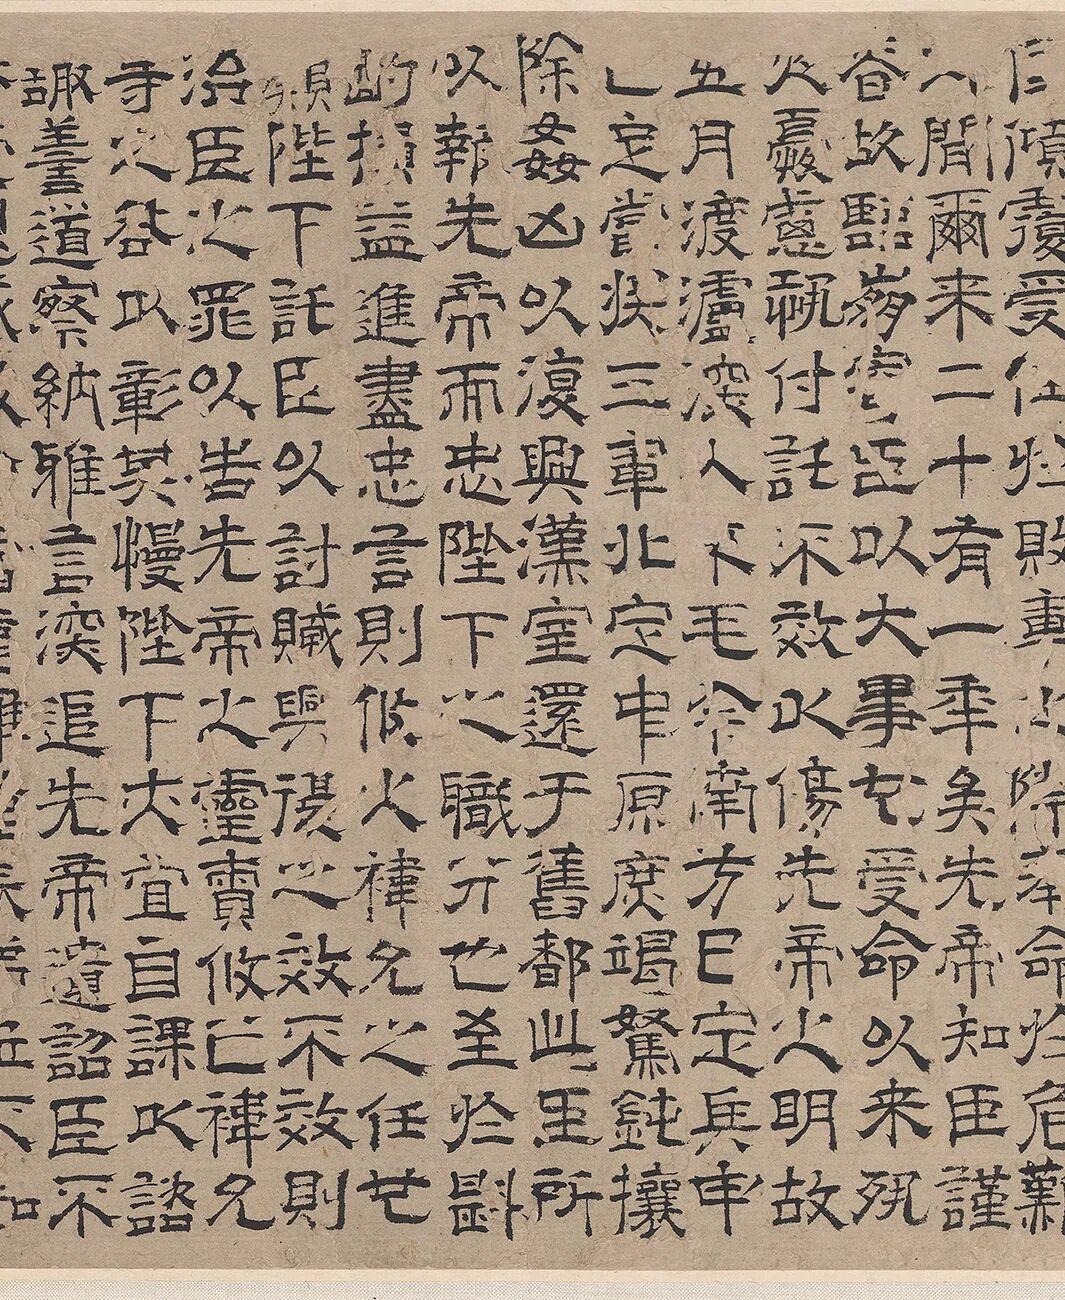 傾覆受任於敗軍之際奉命於危難
之間爾来二十有一年矣先帝知臣謹
昚故臨崩寄臣以大事也受命以来夙
夜憂慮恐付託不效以傷先帝之明故
五月渡瀘深入不毛今南方已定兵甲
已定當獎三軍北定中原庶竭駑鈍攘
除姦凶以復興漢室還于舊都此臣所
以報先帝而忠陛下之職分也至於斟
酌損益進盡忠言則攸之禕允之任也
願陛下託臣以討賊興復之效不效則
治臣之罪以告先帝之靈責攸之禕允
等之咎以彰其慢陛下亦宜自課以諮
諏善道察納雅言深追先帝遺詔臣不